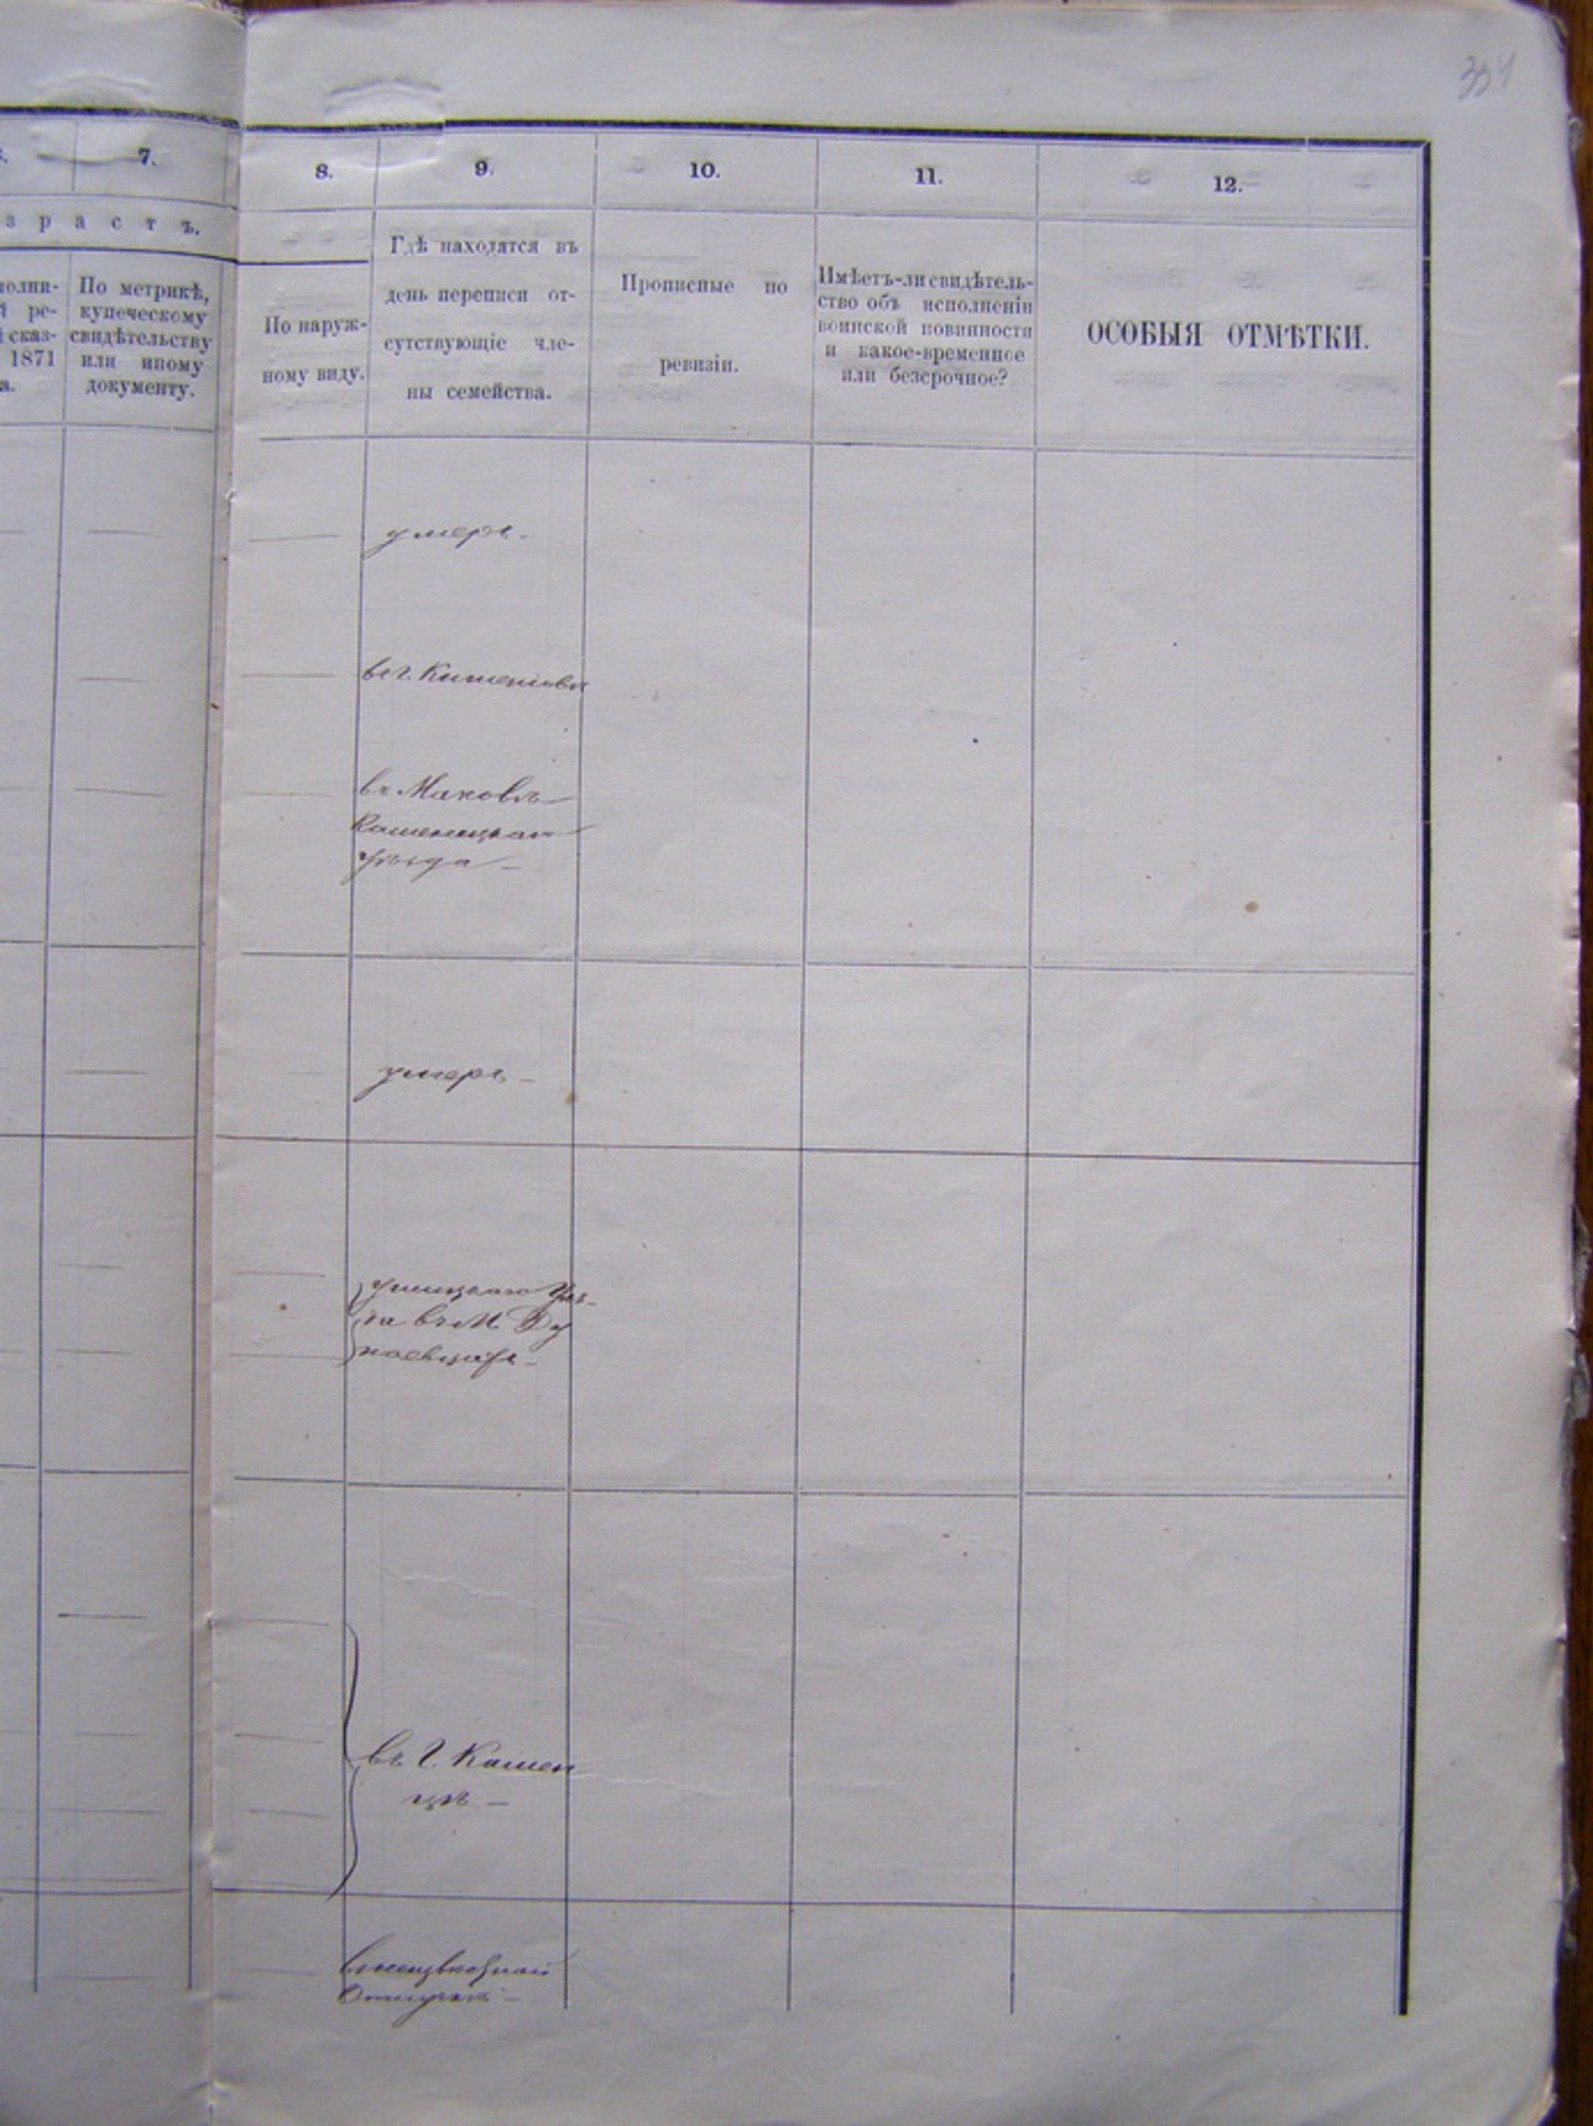 334
7.
8.
9.
10.
11.
12.
з р а с т ъ.
полни-
й ре-
сказ-
1871
а.
По метрикѣ,
купеческому
свидѣтельству
или иному
документу.
По наруж-
ному виду.
Гдѣ находятся въ
день переписи от-
сутствующіе чле-
ны семейства.
Прописные по
ревизіи.
Имѣетъ-ли свидѣтель-
ство объ исполненіи
воинской повинности
и какое-временное
или безсрочное?
ОСОБЫЯ ОТМѢТКИ.
умеръ.
въ г. Кишеневѣ
въ Маковѣ
Каменецкаго
уѣзда
умеръ
Ушицкаго Уѣз-
да въ М. Ду
наевцахъ
въ Г. Камен
цѣ
Отлучкѣ